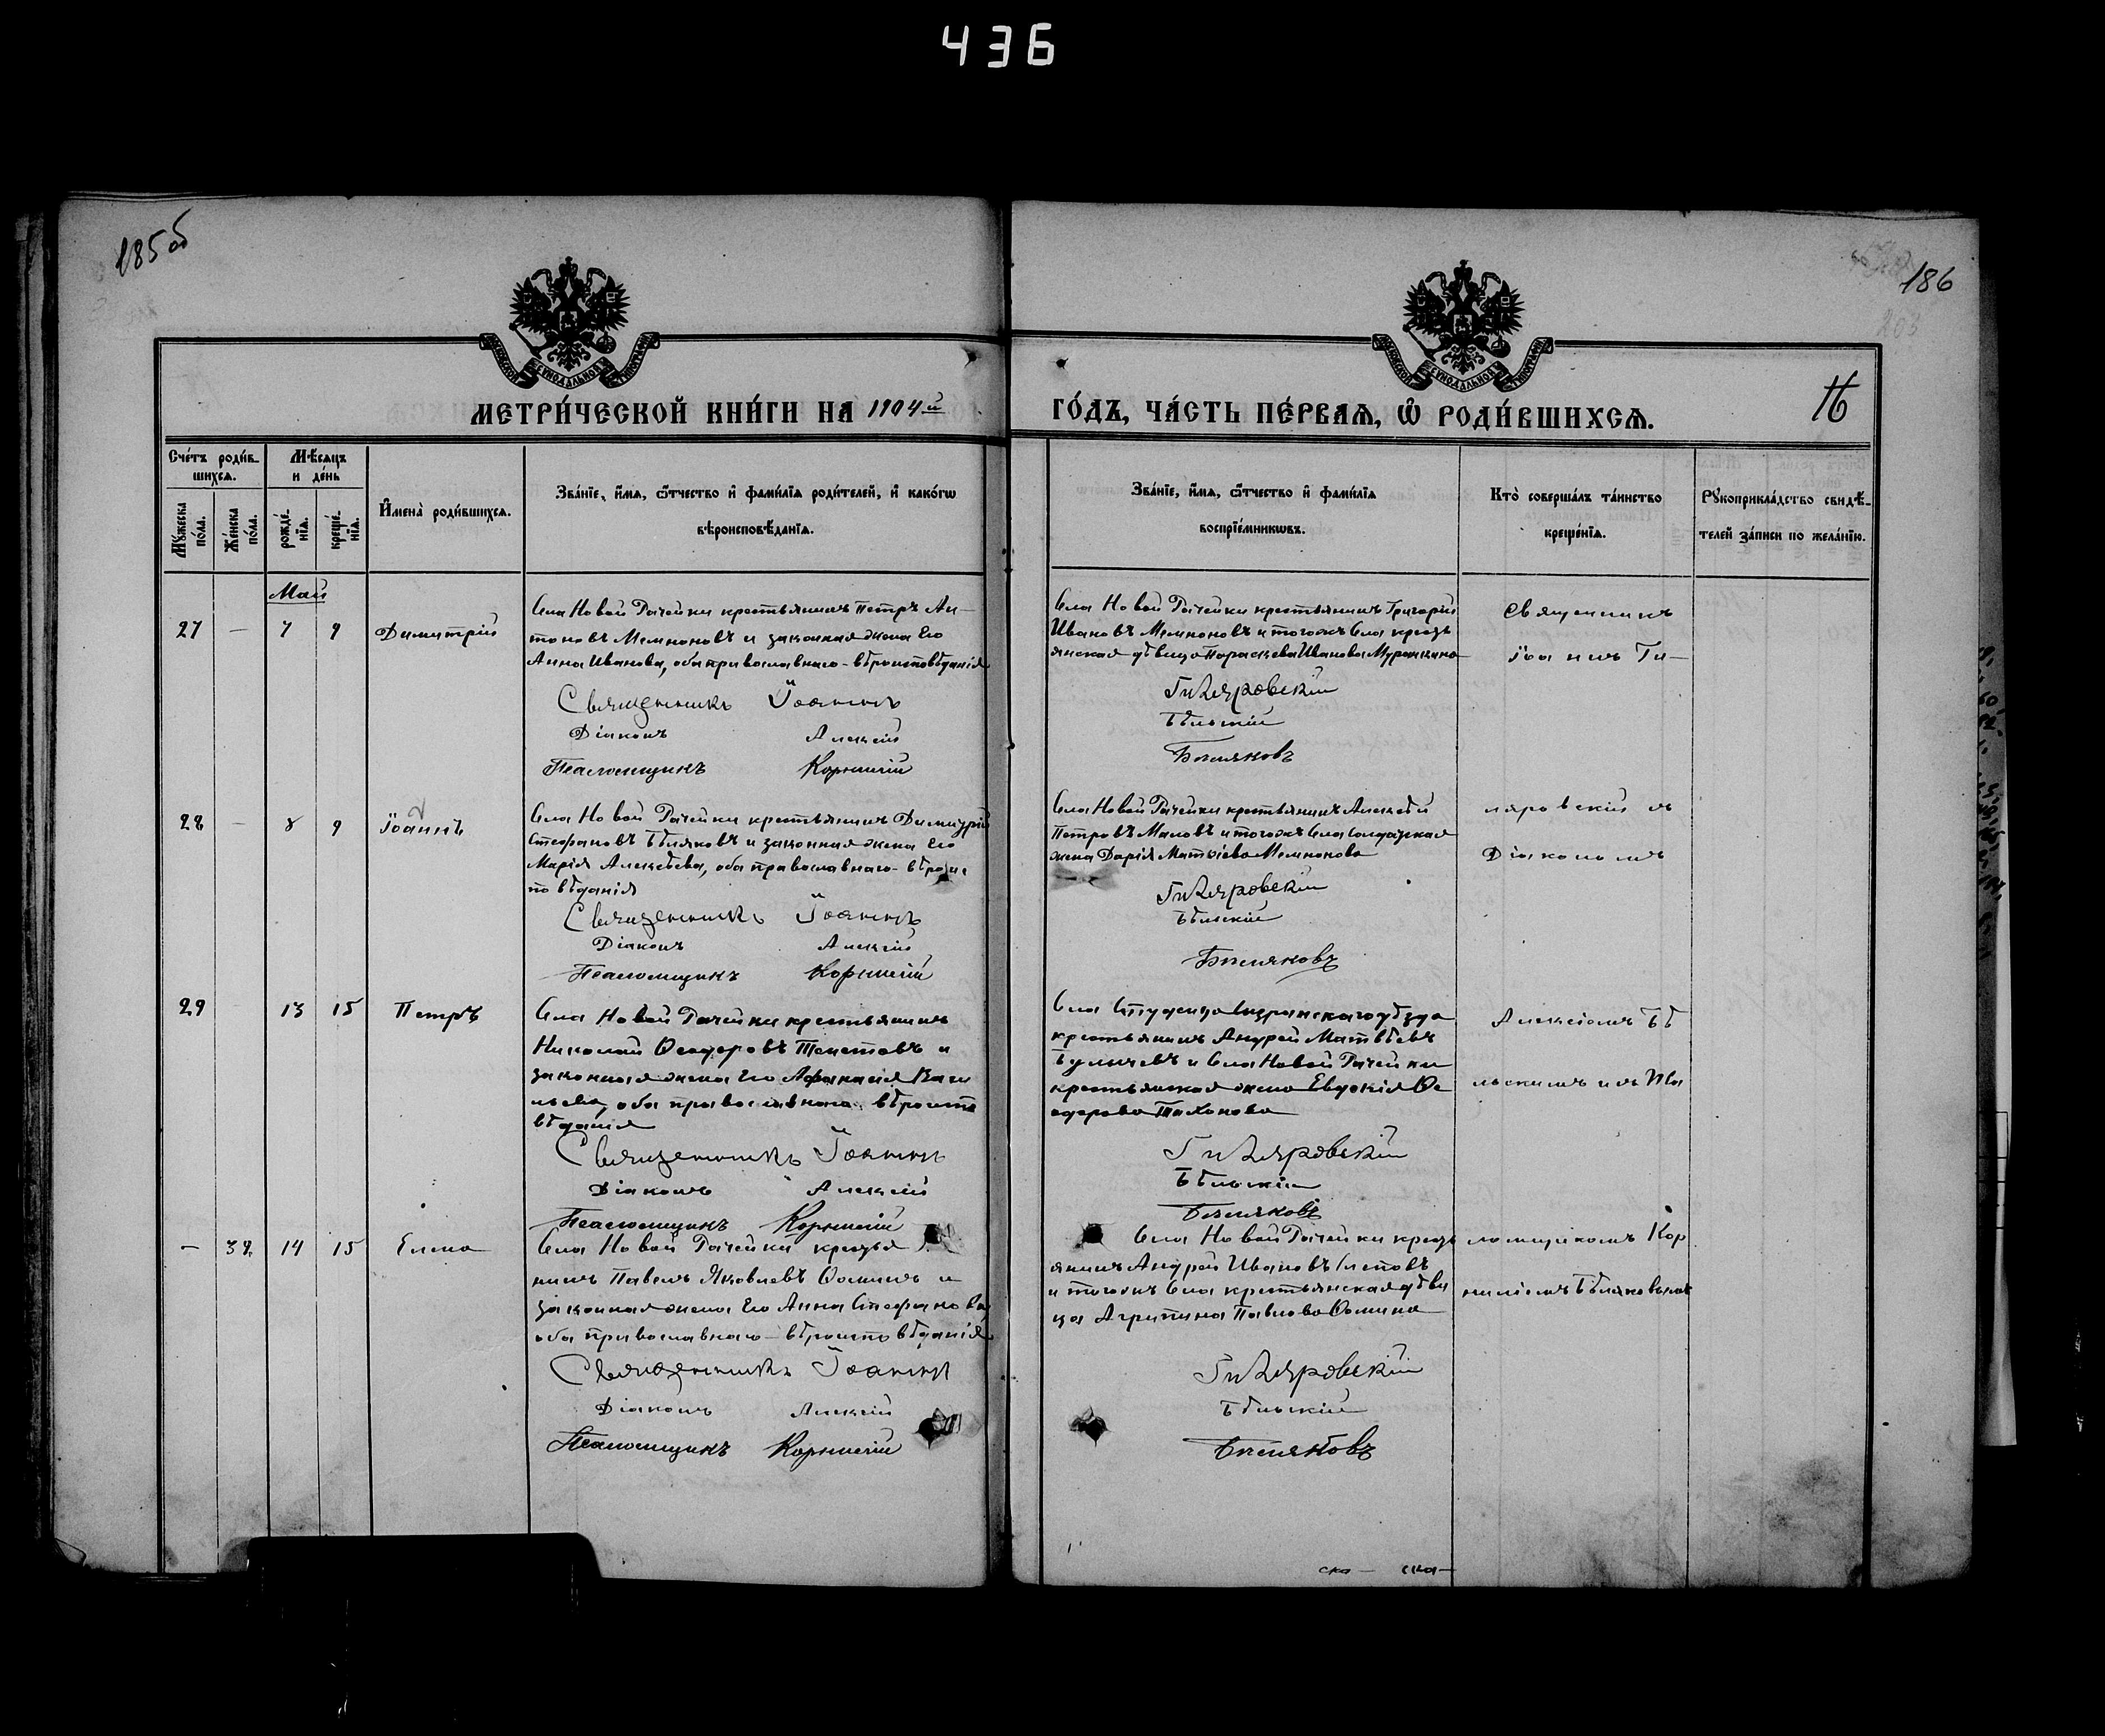 436
185 об
186
МЕТРИ́ЧЕСКОЙ КНИ́ГИ НА 1904 й
ГО́ДЪ, ЧА́СТЬ ПЕ́РВАЯ, Ѽ РОДИ́ВШИХСЯ.
16
Сче́тъ роди́в-
шихся.
Мѣсяцъ
и де́нь
Му́жеска по́ла.
Же́нска по́ла.
рожде́нїя.
креще́нїя.
И҆мена̀ роди́вшихся.
Зва́нїе, и҆́мя, ѻ҆́тчество и҆ фами́лїя роди́телей, и҆ како́гѡ
вѣроисповѣ́данїя.
Зва́нїе, и҆́мя, ѻ҆́тчество и҆ фами́лїя
воспрїе́мникѡвъ.
Кто̀ соверша́лъ та́инство
креще́нїя.
Рꙋкоприкла́дство свидѣ́-
телей за́писи по жела́нїю.
Май
27 — 7 9 Димитрій
Села Новой Рачейки крестьянинъ Петръ Ан-
тоновъ Мемноновъ и законная жена его
Анна Иванова, оба православнаго-вѣроисповѣданія
Священникъ Іоаннъ
Діаконъ Алексій
Псаломщикъ Корнилій
Села Новой Рачейки крестьянинъ Григорій
Ивановъ Мемноновъ и тогожъ села кресть
янская дѣвица Параскева Иванова
Гиляровскій
Бѣльскій
Бѣляковъ
Священникъ
Іоаннъ Ги-
28 — 8 9 Іоаннъ
Села Новой Рачейки крестьянинъ Димитрій
Стефановъ Бѣляковъ и законная жена его
Марія Алексѣева, оба православнаго-вѣроис
повѣданія
Священникъ Іоаннъ
Діаконъ Алексій
Псаломщикъ Корнилій
Села Новой Рачейки крестьянинъ Алексѣй
Петровъ Маловъ и тогожъ села солдатская
жена Дарія Матѳіева Мемнонова
Гиляровскій
Бѣльскій
Бѣляковъ
ляровскій съ
Діакономъ
29 13 15 Петръ
Села Новой Рачейки крестьянинъ
Николай Ѳеодоровъ и
законная жена его Аѳанасія Васи
льева, оба православнаго вѣроиспо
вѣданія
Священникъ Іоаннъ
Діаконъ Алексій
Псаломщикъ Корнилій
Села Студенца Сызранскаго уѣзда
крестьянинъ Андрей Матвѣевъ
и села Новой Рачейки
крестьянская жена Евдокія Ѳе
одорова
Гиляровскій
Бѣльскій
Бѣляковъ
Алексіемъ Бѣ
льскимъ и съ Пса
— 34 14 15 Елена
Села Новой Рачейки кресья
нинъ Павелъ Яковлевъ Ѳоминъ и
законная жена его Анна Стефанова,
оба православнаго-вѣроисповѣданія
Священникъ Іоаннъ
Діаконъ Алексій
Псаломщикъ Корнилій
Села Новой Рачейки кресть
янинъ Андрей Ивановъ
и тогожъ села крестьянская дѣви
ца Агрипина Павлова Ѳомина
Гиляровскій
Бѣльскій
Бѣляковъ
ломщикомъ Кор
ниліемъ Бѣляковымъ
ска — ска —